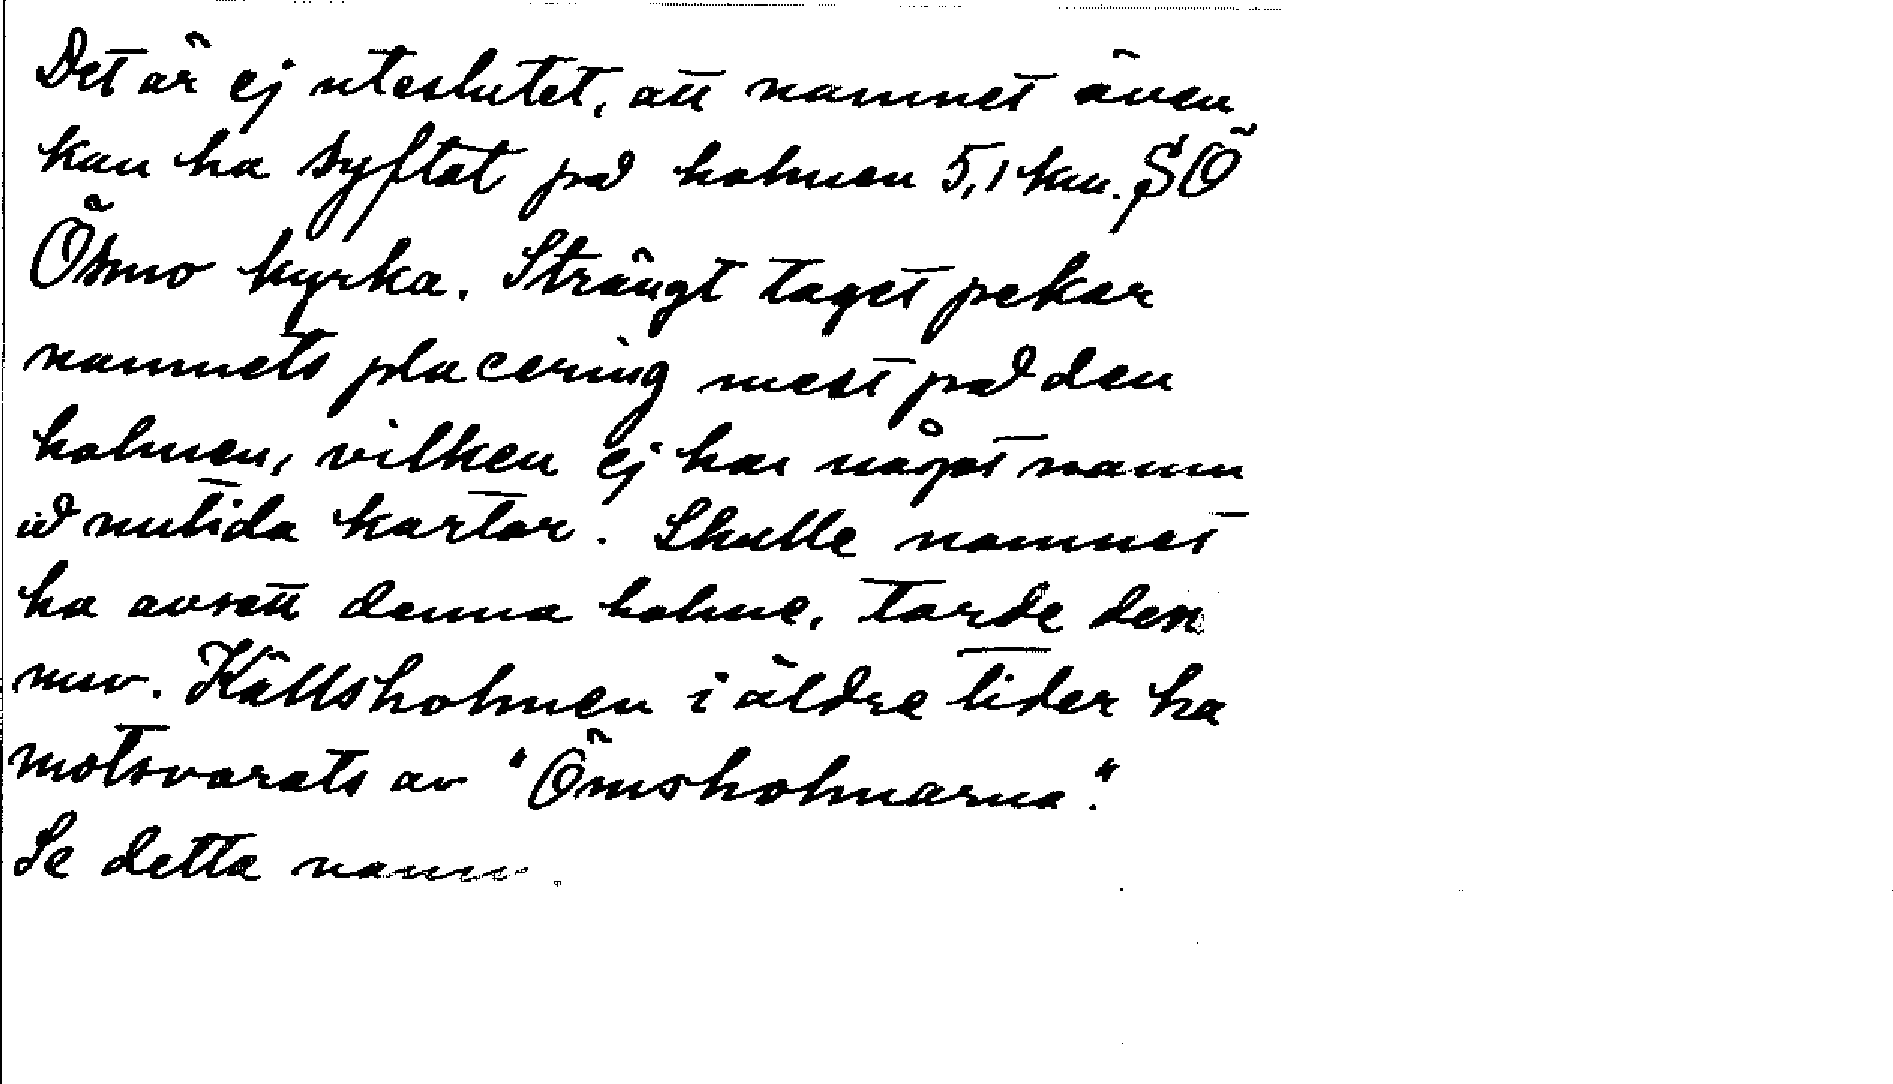 Det är ej uteslutet, att namnet även
kan ha syftat på holmen 5,1 km. SÖ
Ösmo kyrka. Strängt taget pekar
namnets placering mest på den
holmen, vilken ej har något namn
på nutida kartor. Skulle namnet
ha avsett denna holme, torde den
nuv. Källsholmen i äldre tider ha
motsvarats av "Ömsholmarna".
Se detta namn.